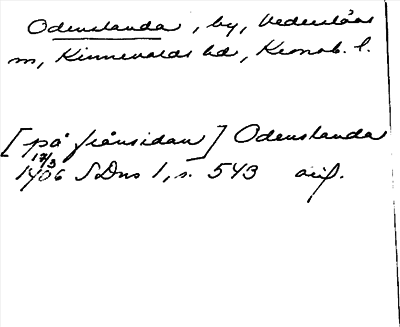 Odenslanda, by, Vederslövs
sn, Kinnevalds hd, Kronob. l.
[på frånsidan] Odenslanda
17/3
1406 SDns 1, s. 543 avs.